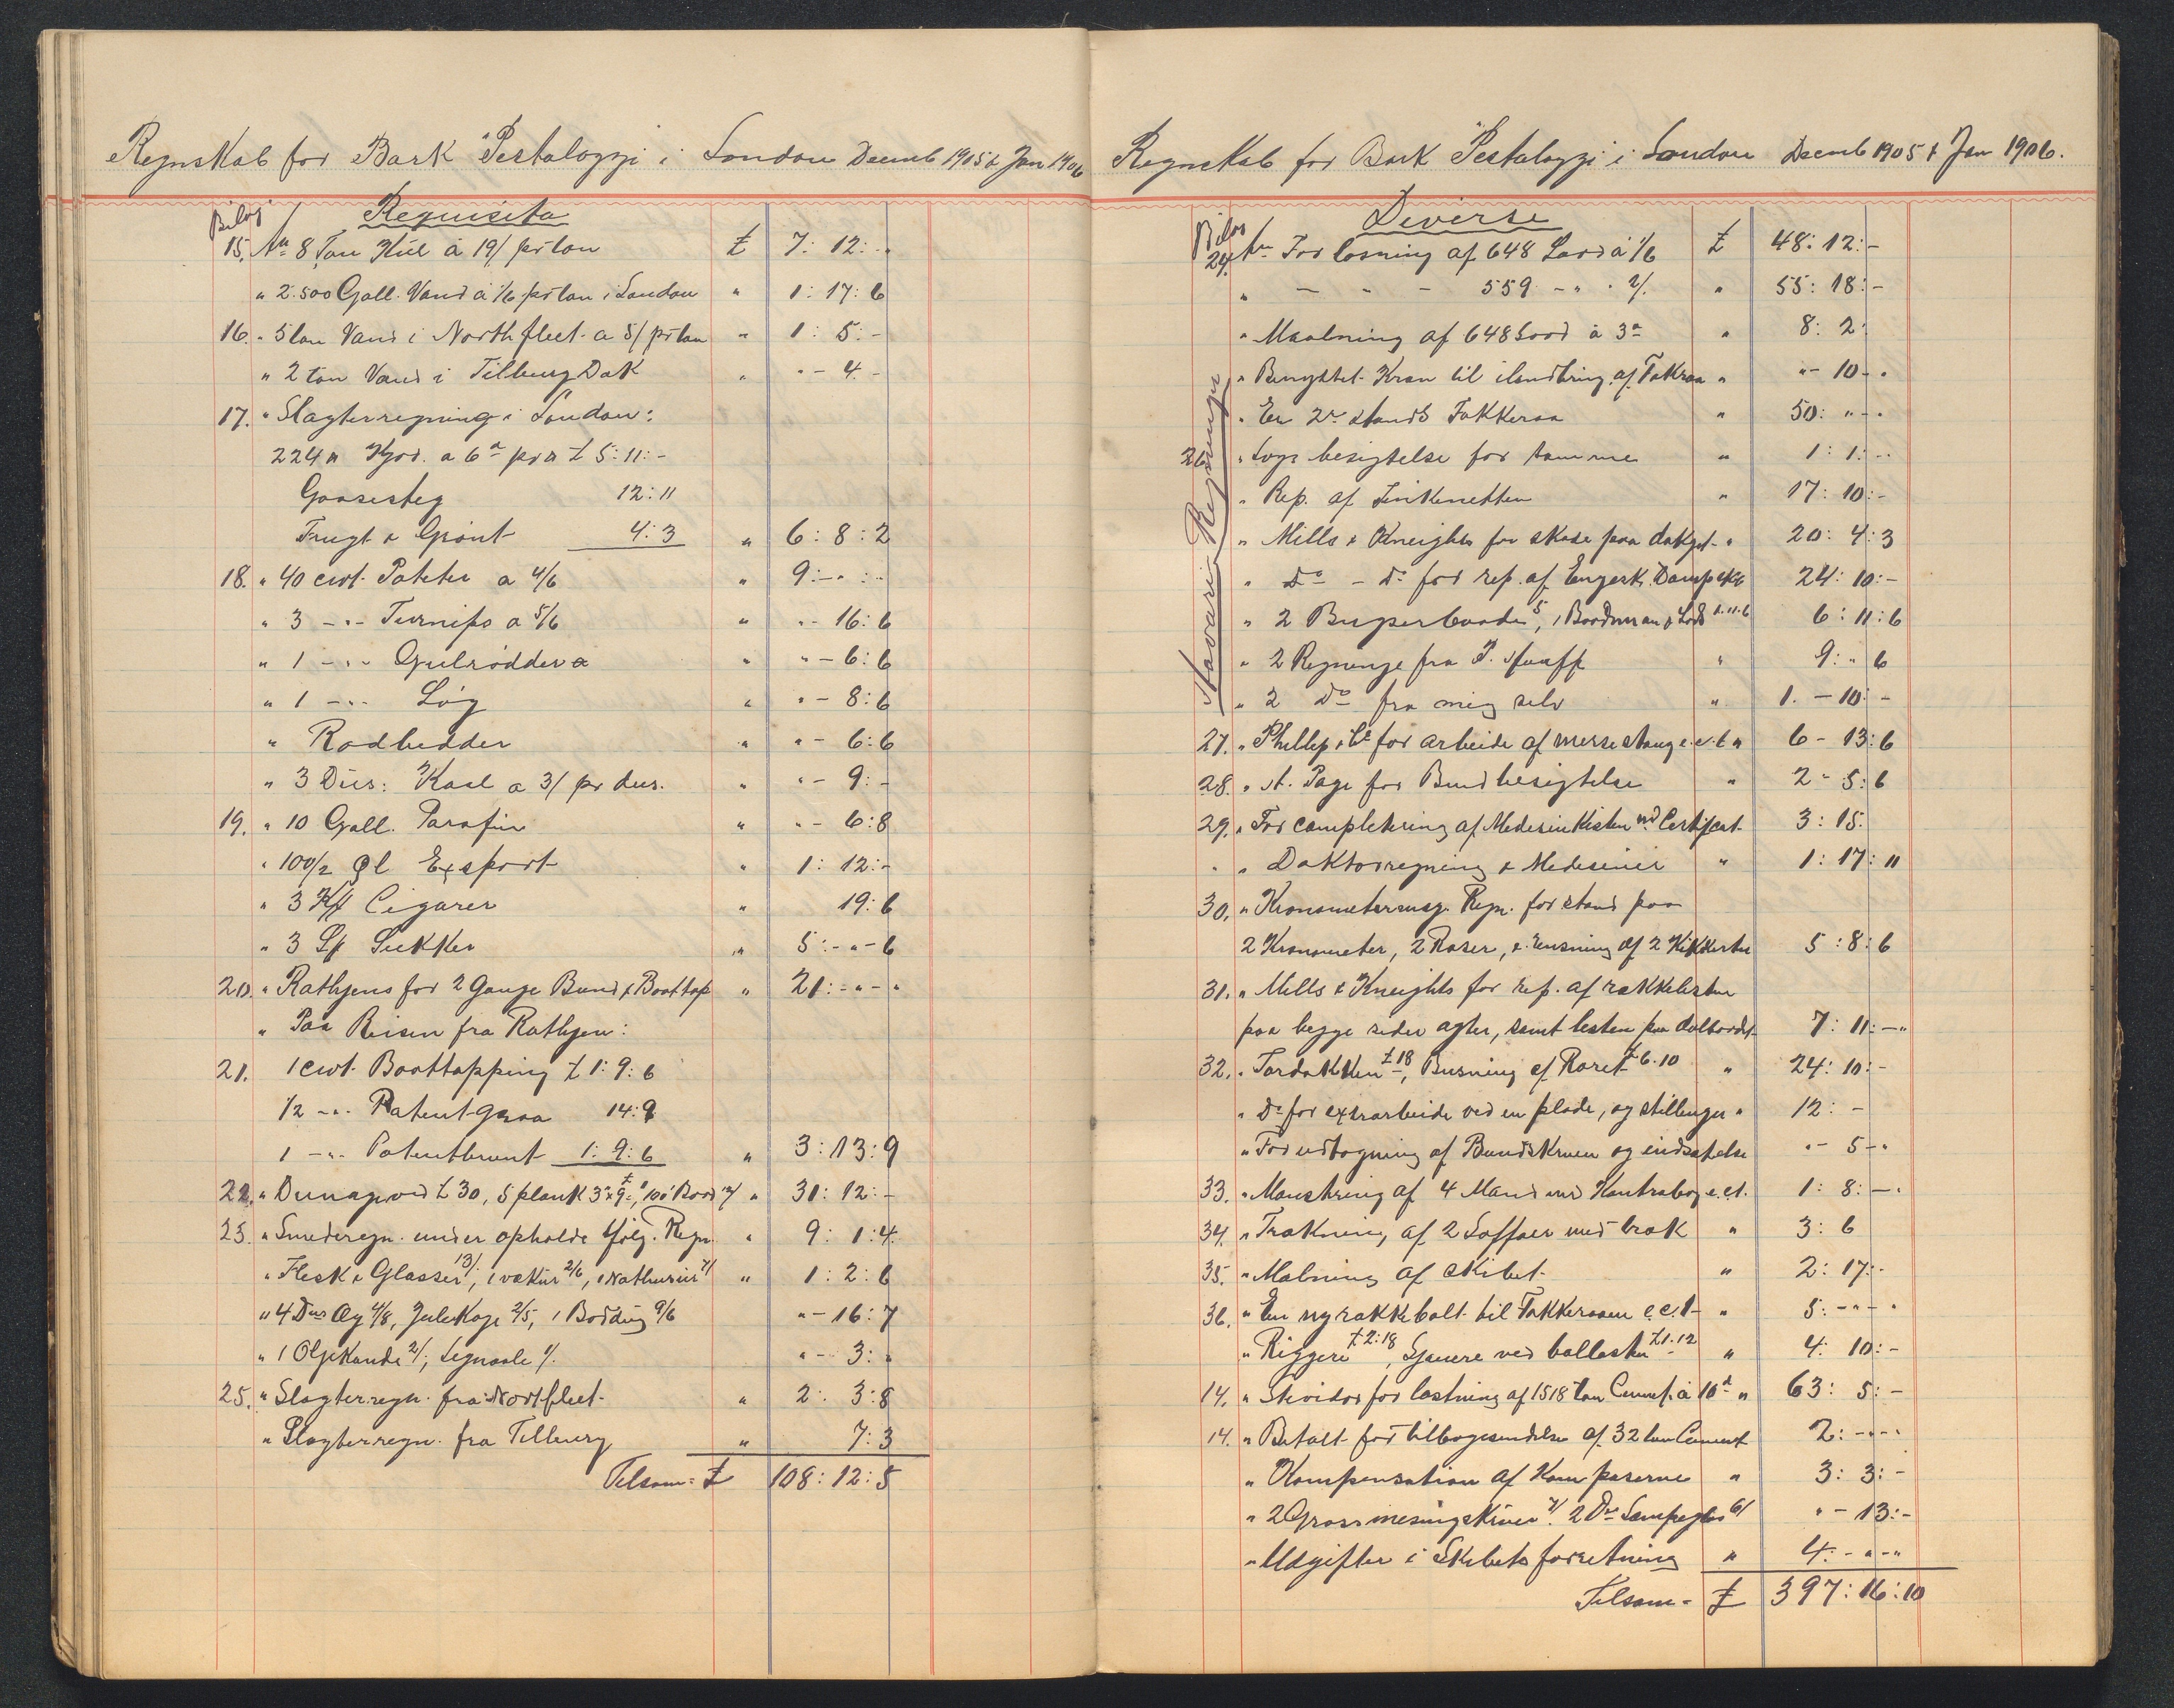 Regnskab for Bark "Pestalozzi" i London Decemb 1905 & Jan 1906
Bilag Requisita
15. An 8 Ton Kül à 19/ pr ton £ 7: 12: "
" 2.500 Gall. Vand à 1/6 pr ton i London " 1: 17: 6
16. " 5 ton Vand i Northfleet a 5/ pr ton " 1: 5: -
" 2 ton Vand i Tilburg Dok " " - 4 -
17. " Slagterregning i London:
224 # Kjød. a 6d pr # £ 5: 11: -
Gaasesteg 12: 11
Frugt & Grönt 4: 3 " 6: 8: 2
18. " 40 cwt. Poteter a 4/6 " 9: - " : -
" 3 - " - Turnips a 5/6 " " - 16: 6
" 1 - " - Gulrödder a " " - 6: 6
" 1 - " - Løg " " - 8: 6
" Rødbedder " " - 6: 6
" 3 Düs: Kaal a 3/ pr dus. " " - 9: -
19. " 10 Gall. Parafin " " - 6: 8
" 100/2 Øl Export " 1: 12: -
" 3 K/ Cigarer " 19: 6
" 3 S/ Sukker " 5: - " - 6
20. " Rathjens for 2 Gange Bund & Boottop " 21: - " - "
" Paa Reisen fra Rathjen:
21. 1 cwt. Boottopping £ 1: 9: 6
1/2 - " - Patentgraa 14: 9
1 - " - Patentbrunt 1: 9: 6 " 3: 13: 9
22. " Dunageved £ 30, 5 plank 3"x9", 100' Bord 12/ " 31: 12: -
23. " Smederegn. under opholdt følg. Regn. " 9: 1: 4.
" Flesk & Glasser 13/, 1 vækür 2/6, 1 Nathurür 7/ " 1: 2: 6
" 4 Dus Æg 4/8, Julekage 2/5, 1 Bodding 9/6 " - 16: 7
" 1 Oljekande 2/; Segnaale 1/. " - 3: "
25. " Slagterregn. fra Nortfleet. " 2: 3: 8
" Slagterregn. fra Tilburg " 7: 3
Tilsam= £ 108: 12: 5
Regnskab for Bark "Pestalozzi" i London Decemb 1905 & Jan 1906.
Bilag Diverse
24. An For losning af 648 Lood à 1/6 £ 48: 12: -
" - " - 559 - " - 2/. " 55: 18: -
" Maalning af 648 Lood à 3d " 8: 2:
" Benyttet Kran til ilandbring. af Fokraa " " - 10 - "
" En 2den stands Fokkeraa " 50: " - "
Havari Regninger
26. " Lugebesigtelse for tømme " 1: 1: - "
" Rep. af Finkenetten " 17: 10: -
" Mills & Kneights for skade paa dækget " 20: 4: 3
" Do - Do for rep. af Engersk. Dampskb 24: 10: -
" 2 Bugserbaade 5, 1 Baadman & Lods 1.11.6 6: 11: 6
" 2 Regninge fra " 9: " 6
" 2 Do fra mig selv " 1. - 10: -
27. " Phillip & Co for arbeide af mersestang e.c.t " 6 - 13: 6
28. " A. Page for Bundbesigtelse " 2 - 5: 6
29. " For completering af Medesinkisten md Certifcat. 3: 15.
" " Doktorregning & Medesiner " 1: 17: 11
30. " Kronometermag. Regn. for stand paa
2 Kronometer, 2 Roser, & Rensning af 2 Kikkerter 5: 8: 6
31. " Mills & Kneights for rep. af rækkelisten
paa begge sider agter, samt lesten paa dolbordet 7: 11: - "
32. " Tørdokken £ 18, Busning af Roret £ 6.10 " 24: 10: -
" Do for extrarbeide ved en plade, og stillinger " 12: -
" For udtagning af Bundskruen og indsættelse " - 5 - "
33. " Mønstring af 4 Mand med Kontrabog e.c.t. 1: 8: - "
34. " Trækning af 2 Soffaer med træk " 3: 6
35. " Malning af skibet " 2: 17: -
36. " En ny rakkebolt til Fokkeraaen e.c.t - " 5: - " - "
" Riggere £ 2:18, Sjauere ved ballasten £ 1.12 " 4: 10: -
14. " Stevidor for lastning af 1518 ton Cement. à 10d " 63: 5: -
14. " Betalt for tilbagesendelse af 32 ton Cement 2: - " - "
" Kompensation af Kompaserne " 3: 3: -
" 2 Gross mesingskruer 7/. 2 Ds Lampeglas 6/ " - 13: -
" Udgifter i Skibets forretning " 4: - " - "
Tilsam= £ 397: 16: 10